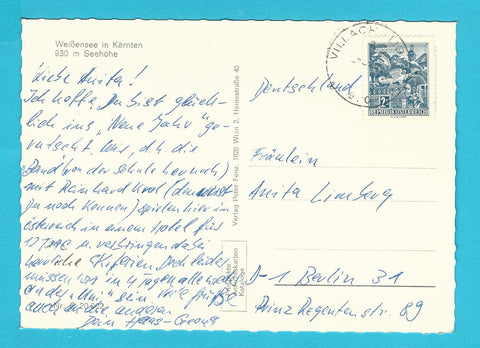 Weißensee in Kärnten
930 m Seehöhe
Liebe Anita!
Ich hoffe, Du bist glück-
lich ins "Neue Jahr" ge-
rutscht. Wir, d.h. die
Band (von der Schule her noch)
mit Reinhard (den
Du noch kennen) spielen hier in
Österreich in einem Hotel für
17 TAGE u. verbringen dabei
herrliche Skiferien. Doch leider
müssen wir in 4 Tagen alle wieder
an der "Uni" sein. Viele Grüße
auch an die anderen
Dein Hans-Georg
Verlag Peter Fenz, 1020 Wien 2, Heinestraße 40
VILLACH
REPUBLIK ÖSTERREICH
Deutschland
Fräulein
Anita Limberg
D-1 Berlin 31
Prinz Regentenstr. 89